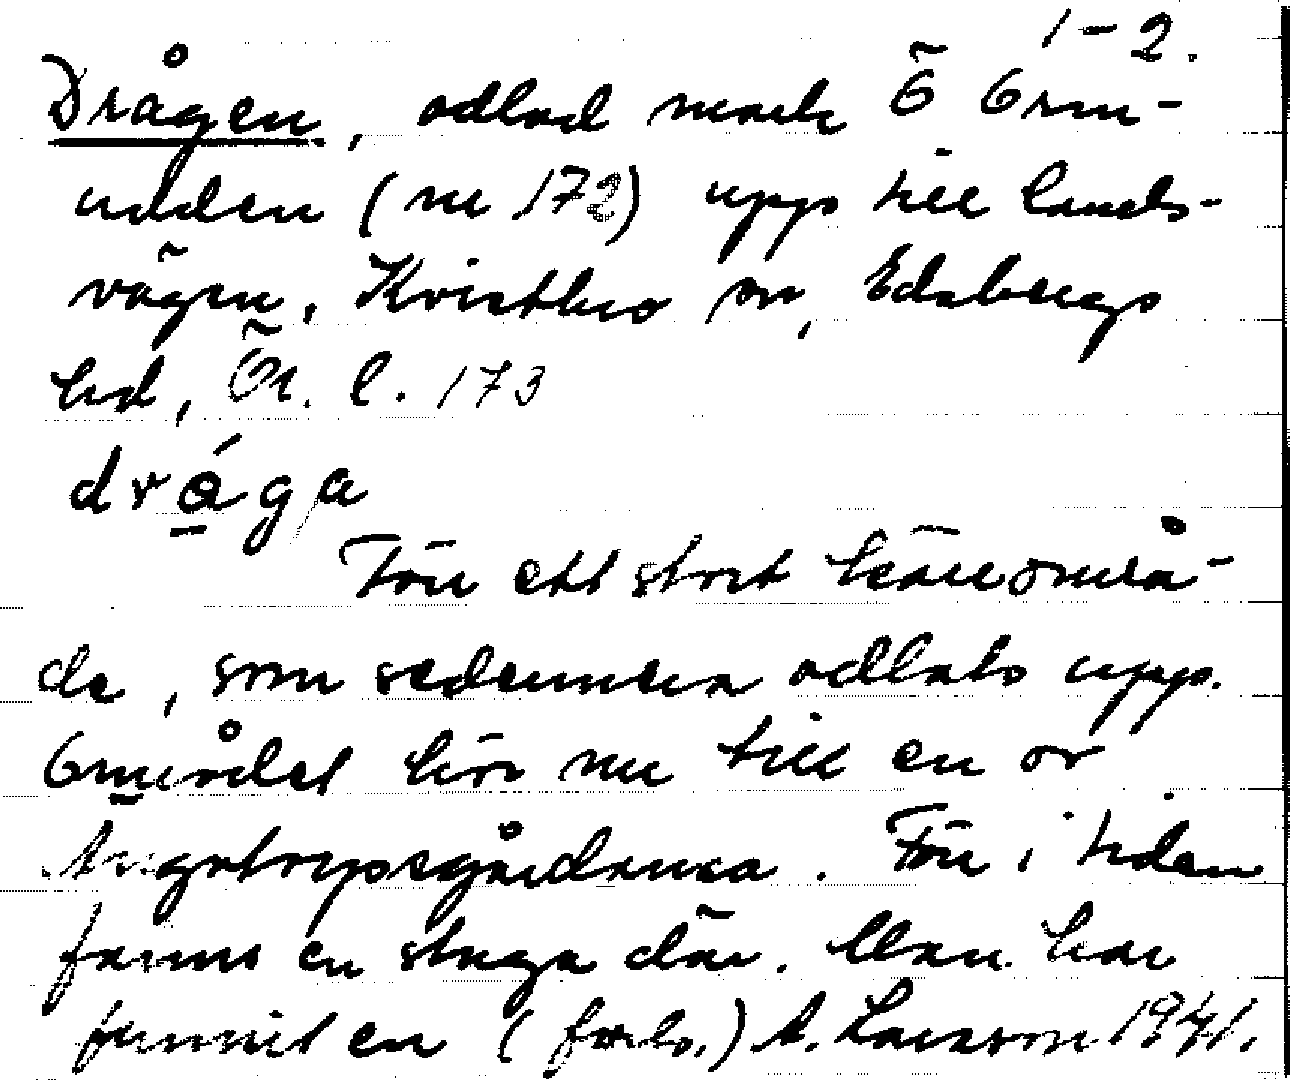 1-2.
Drågen, odlad mark Ö Orm-
udden (nr 172) upp till lands-
vägen, Kvistbro sn, Edsbergs
hd, Ör. l. 173
dråga
Förr ett stort kärrområ-
de, som sedermera odlats upp.
Området hör nu till en av
Ängatorpsgårdarna. Förr i tiden
fanns en stuga där. Man har
funnit en (forts.) A. Larsson 1941.